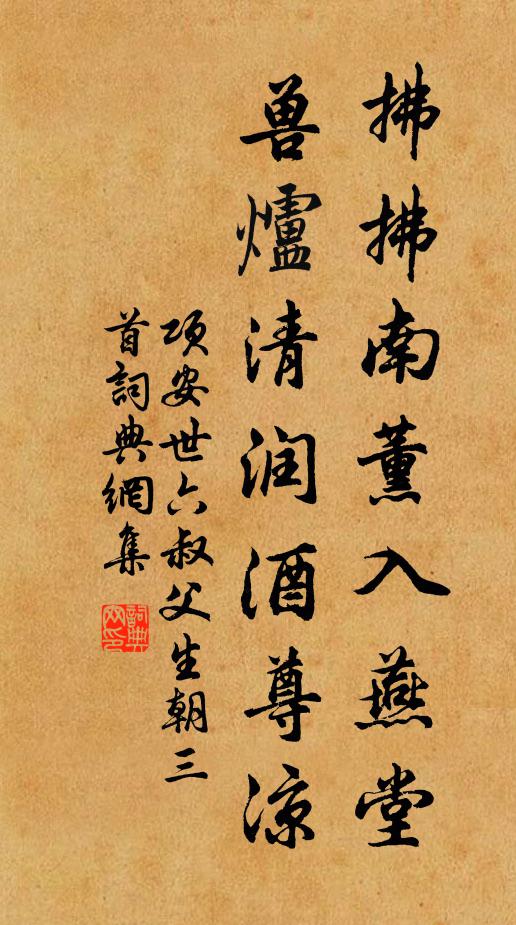 拂拂南薰入燕堂
兽爐清润酒尊凉
项安世六叔父生朝三
首詞典網集
詞典网印